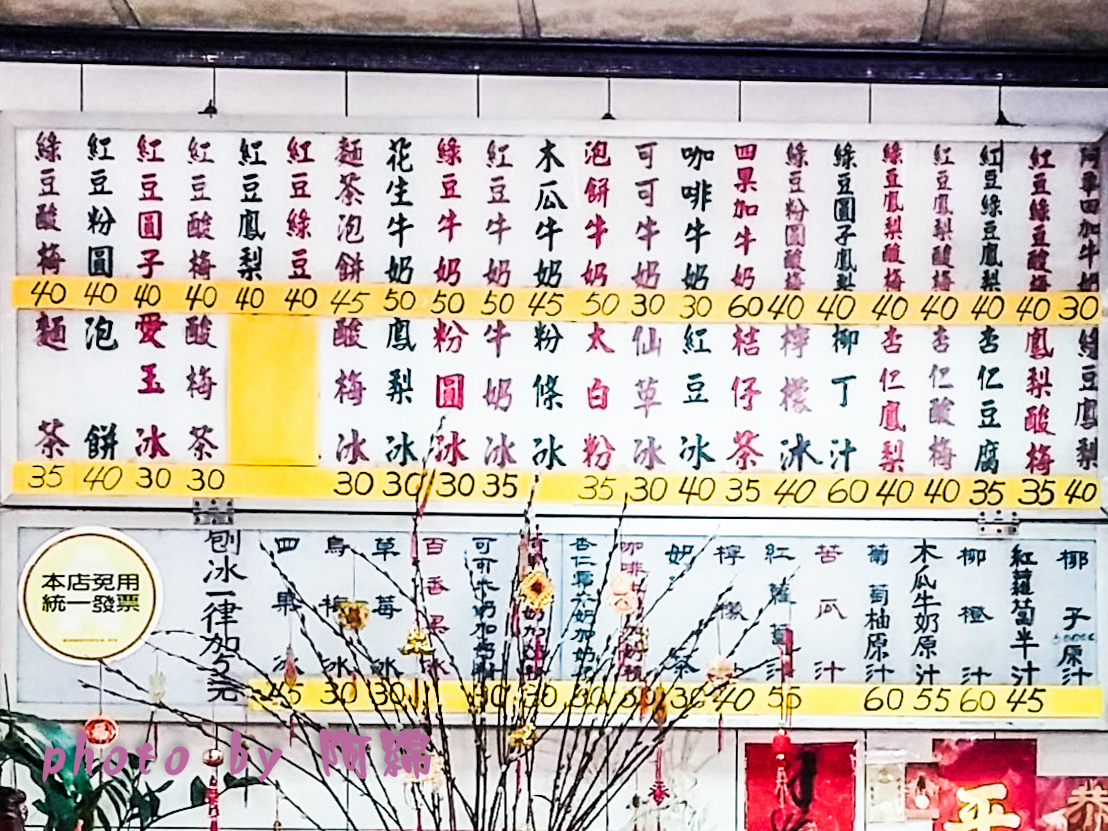 阿華田加牛奶 30
紅豆綠豆酸梅 40
紅豆綠豆鳳梨 40
紅豆鳳梨酸梅 40
綠豆鳳梨酸梅 40
綠豆圓子鳳梨 40
綠豆粉圓酸梅 40
四果加牛奶 60
咖啡牛奶 30
可可牛奶 30
泡餅牛奶 50
木瓜牛奶 45
紅豆牛奶 50
綠豆牛奶 50
花生牛奶 50
麵茶泡餅 45
紅豆綠豆 40
紅豆鳳梨 40
紅豆酸梅 40
紅豆圓子 40
紅豆粉圓 40
綠豆酸梅 40
綠豆鳳梨 40
鳳梨酸梅 35
杏仁豆腐 35
杏仁酸梅 40
杏仁鳳梨 40
柳丁汁 60
檸檬冰 40
桔仔茶 35
紅豆冰 40
仙草冰 30
太白粉 35
粉條冰
牛奶冰 35
粉圓冰 30
鳳梨冰 30
酸梅冰 30
酸梅茶 30
愛玉冰 30
泡餅 40
麵茶 35
椰子原汁
紅蘿蔔半汁 45
柳橙汁 60
木瓜牛奶原汁 55
葡萄柚原汁 60
苦瓜汁
紅蘿蔔汁 55
檸檬汁 40
奶茶 30
百香果冰
草莓冰 30
烏梅冰 30
四果冰 45
刨冰一律加5元
本店免用
統一發票
photo by 阿綿